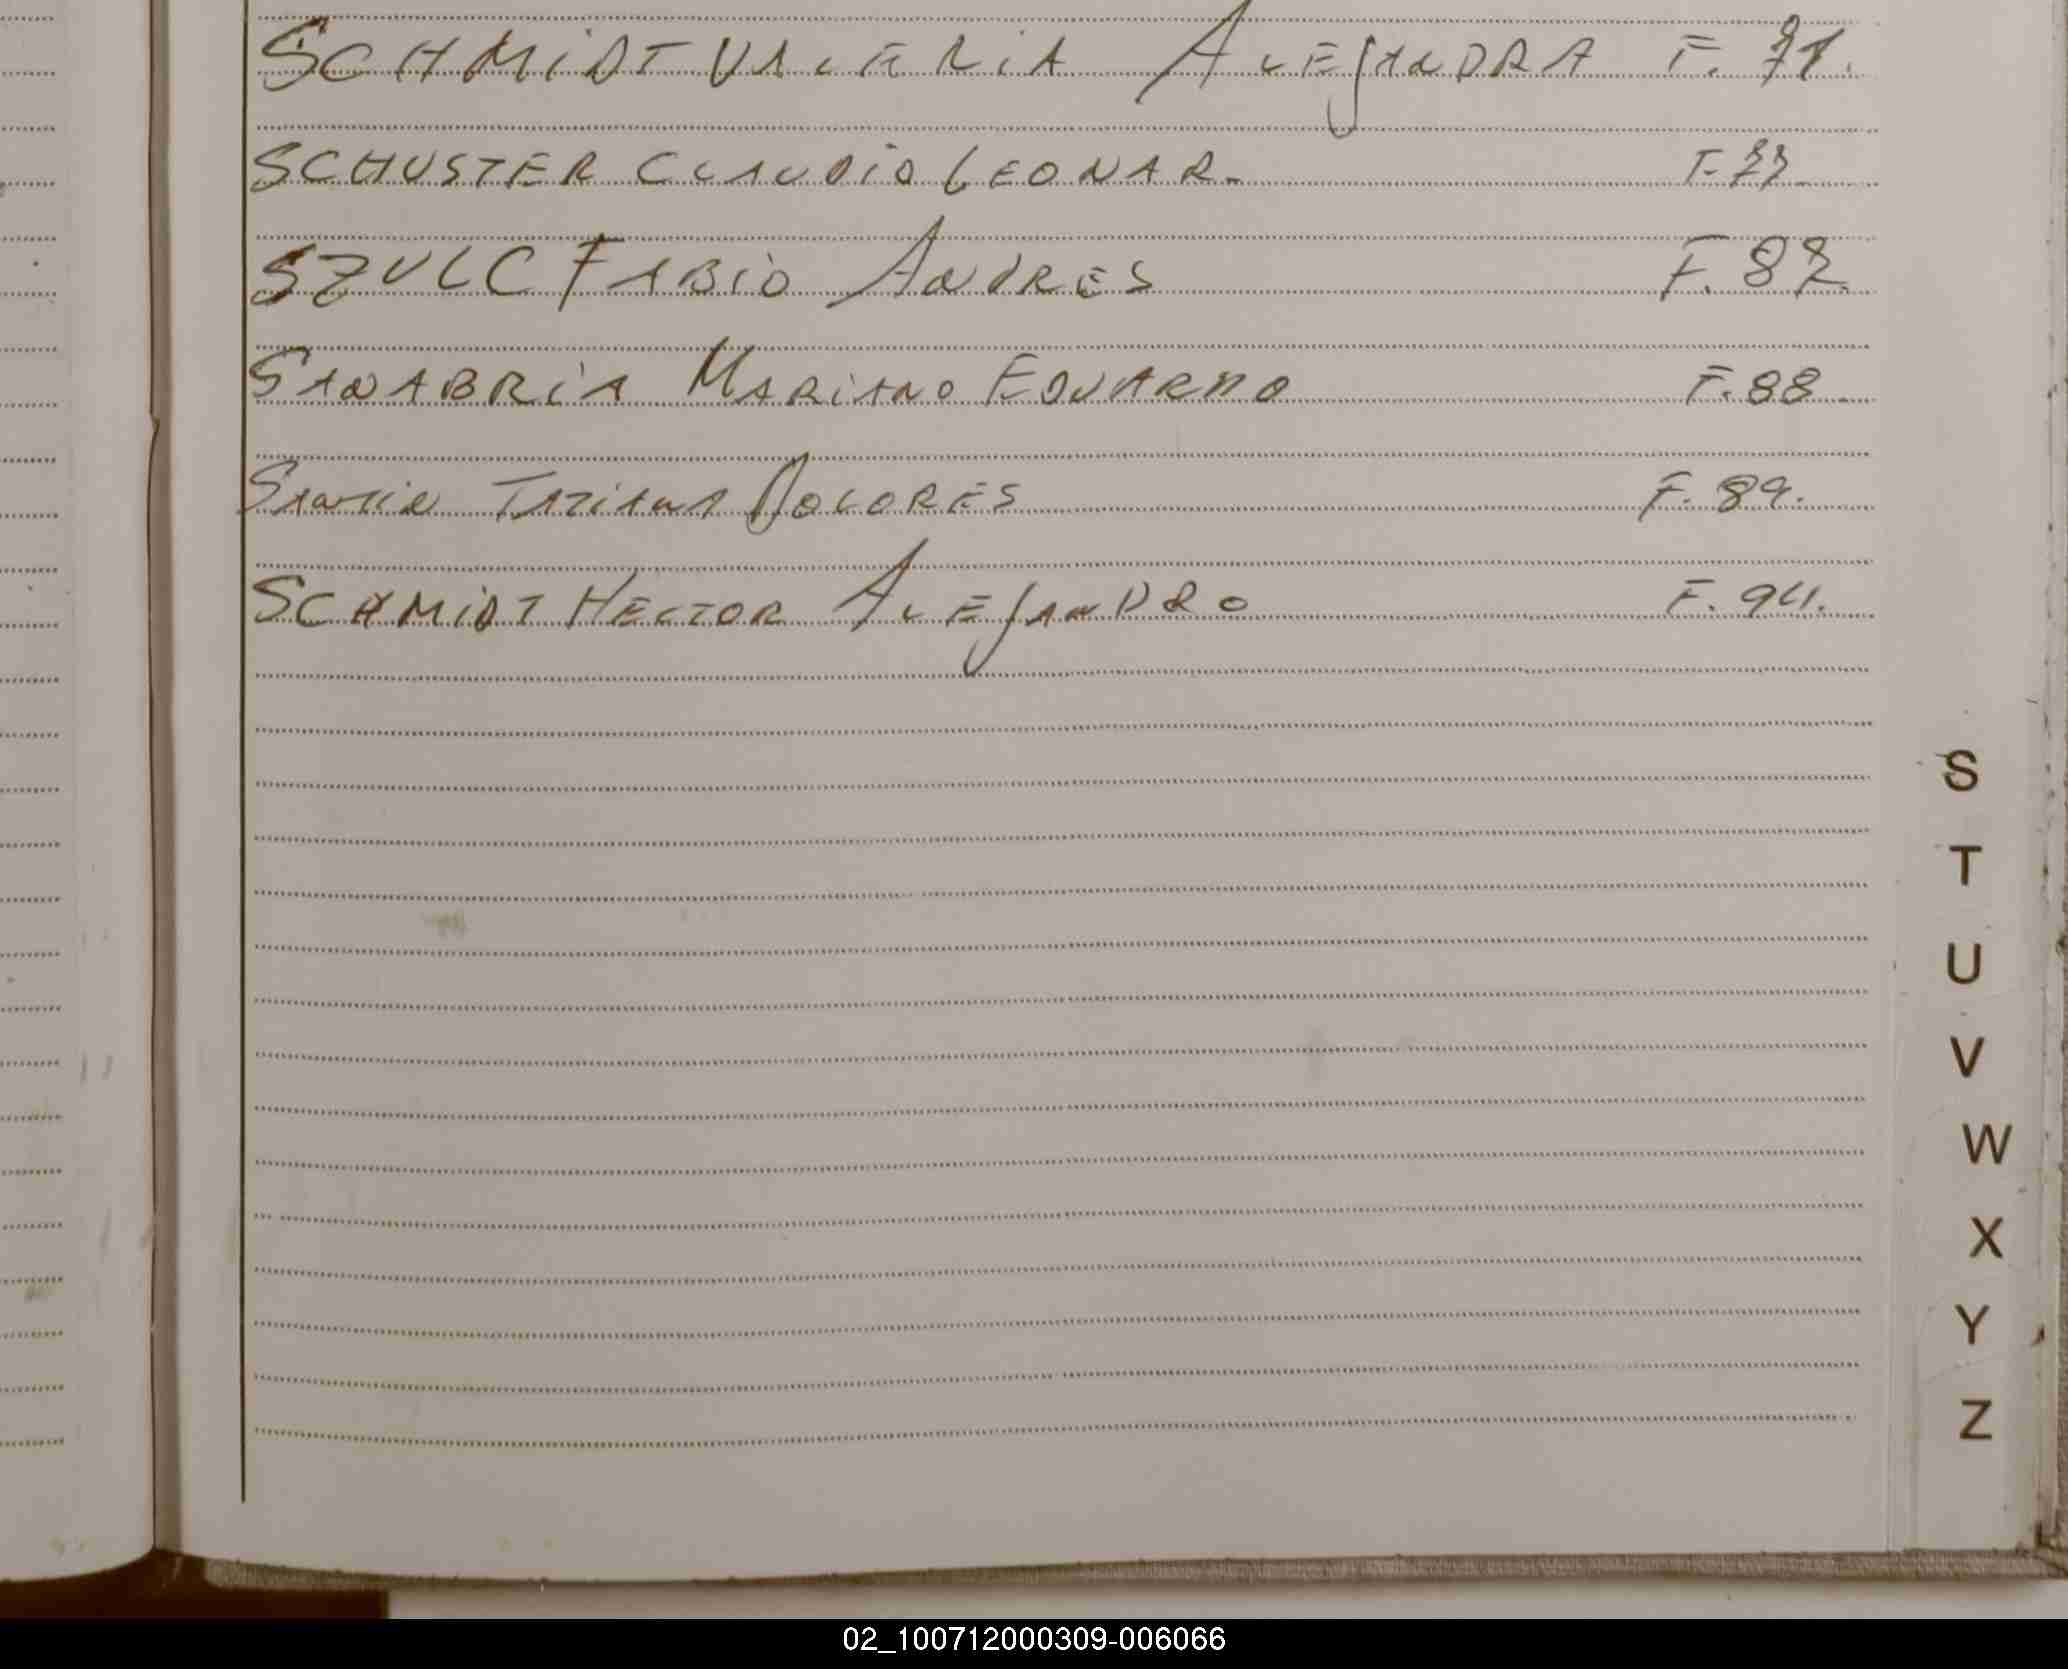 SCHMIDT VALERIA ALEJANDRA F. 71.
SCHUSTER CLAUDIO LEONAR. F. 77.
SZULC FABIO ANDRES F. 82.
SANABRIA MARIANO EDUARDO F. 88.
TATIANA DOLORES F. 89.
SCHMIDT HECTOR ALEJANDRO F. 94.
S
T
U
V
W
X
Y
Z
02_100712000309-006066